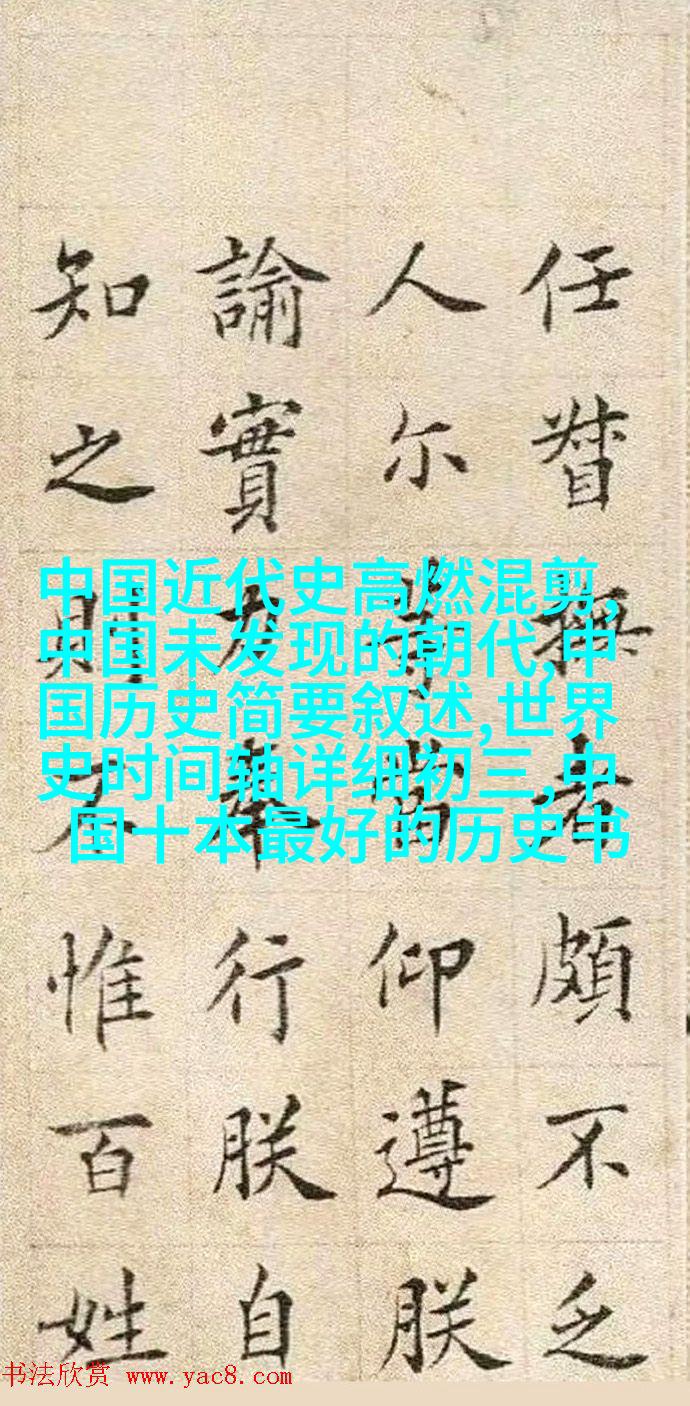 任督撫者頗不乏
人尔等當仰遵朕
諭實力奉行朕自
知之則不惟百姓
中国近代史高燃混剪,
中国未发现的朝代,中
国历史简要叙述,世界
史时间轴详细初三,中
国十本最好的历史书
书法欣赏 www.yac8.com